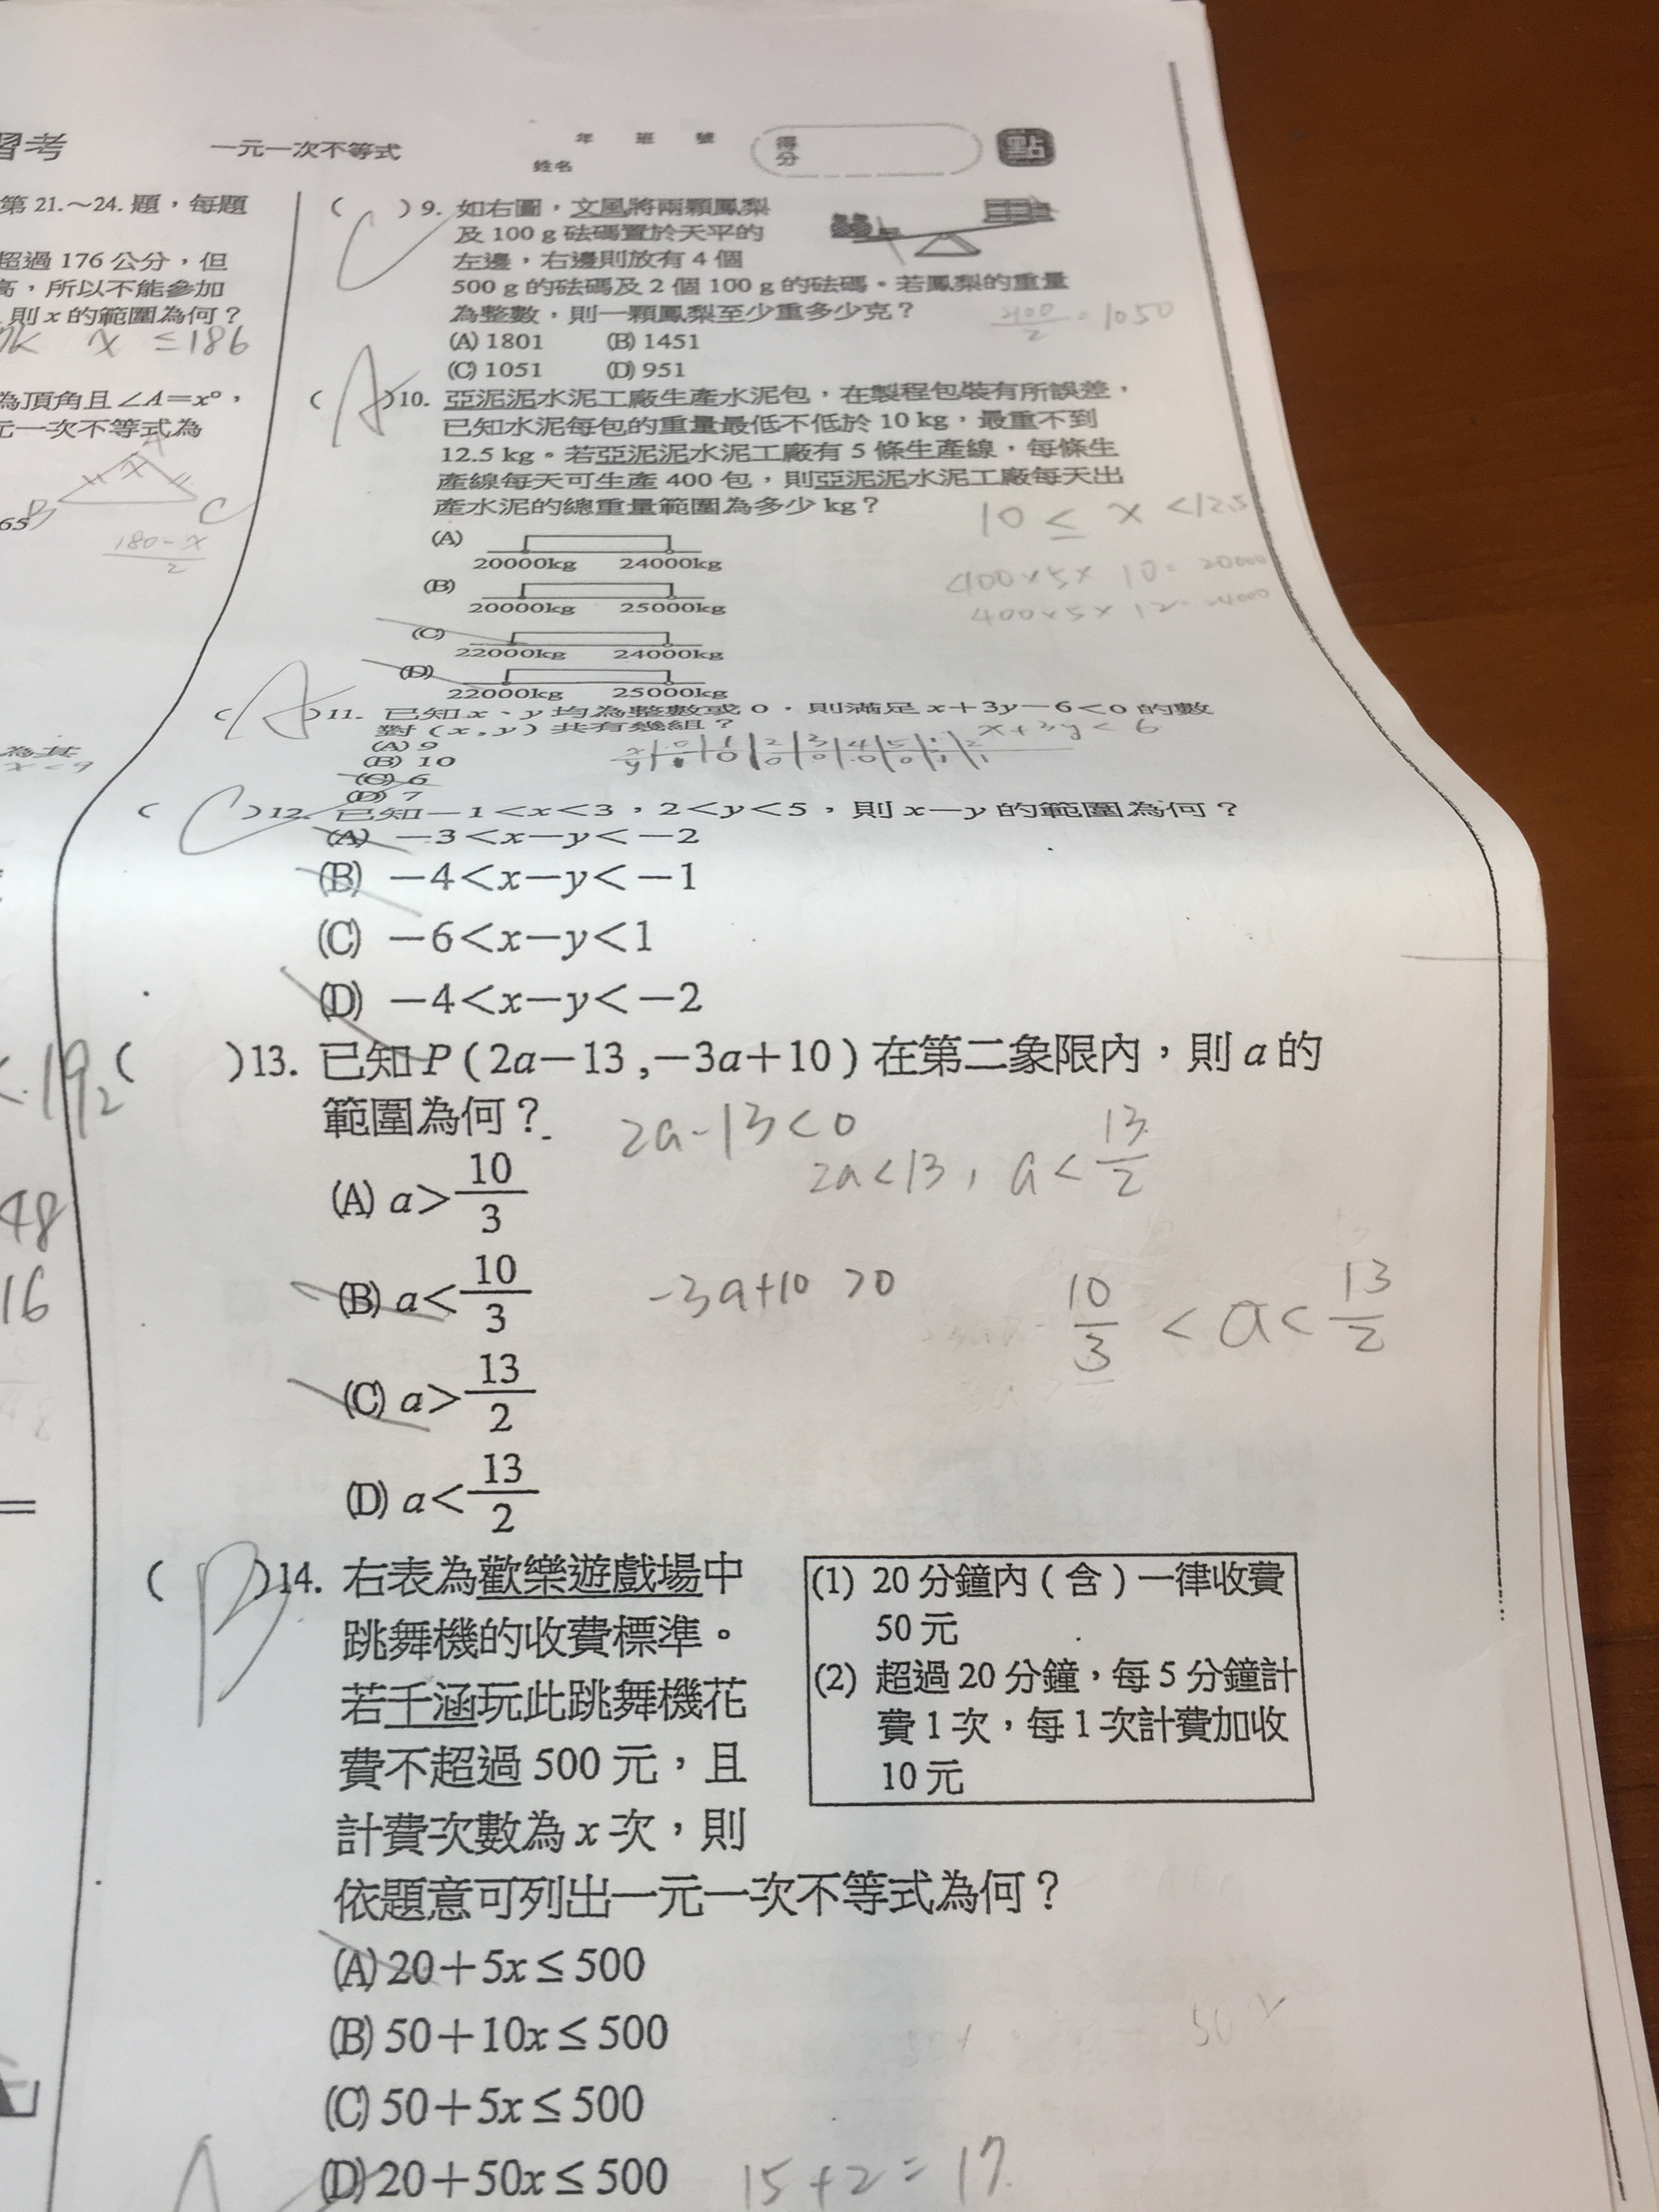 習考
一元一次不等式
年 班 號
姓名
得分
點
第 21.～24. 題，每題
超過 176 公分，但
高，所以不能參加
則 x 的範圍為何？
x ≤186
為頂角且∠A＝x°，
元一次不等式為
A
x
B
C
65
180-x
2
19
2
48
16
=
( C )9. 如右圖，文風將兩顆鳳梨
及 100 g 砝碼置於天平的
左邊，右邊則放有 4 個
500 g 的砝碼及 2 個 100 g 的砝碼。若鳳梨的重量
為整數，則一顆鳳梨至少重多少克？
2100/2 = 1050
(A) 1801 (B) 1451
(C) 1051 (D) 951
( A )10. 亞泥泥水泥工廠生產水泥包，在製程包裝有所誤差，
已知水泥每包的重量最低不低於 10 kg，最重不到
12.5 kg。若亞泥泥水泥工廠有 5 條生產線，每條生
產線每天可生產 400 包，則亞泥泥水泥工廠每天出
產水泥的總重量範圍為多少 kg？
10 ≤ x <12.5
400×5×10=20000
400×5×12=24000
(A)
20000kg 24000kg
(B)
20000kg 25000kg
(C)
22000kg 24000kg
(D)
22000kg 25000kg
( A )11. 已知 x、y 均為整數或 0，則滿足 x＋3y－6＜0 的數
對（x , y）共有幾組？
x+3y<6
(A) 9
(B) 10
(C) 6
(D) 7
( C )12. 已知－1＜x＜3，2＜y＜5，則 x－y 的範圍為何？
(A) －3＜x－y＜－2
(B) －4＜x－y＜－1
(C) －6＜x－y＜1
(D) －4＜x－y＜－2
( )13. 已知 P（2a－13 ,－3a＋10）在第二象限內，則 a 的
範圍為何？
2a-13<0
2a<13, a<13/2
(A) a＞10/3
(B) a＜10/3
-3a+10 >0
10/3 < a < 13/2
(C) a＞13/2
(D) a＜13/2
( B )14. 右表為歡樂遊戲場中
跳舞機的收費標準。
若千涵玩此跳舞機花
費不超過 500 元，且
計費次數為 x 次，則
依題意可列出一元一次不等式為何？
(1) 20 分鐘內（含）一律收費
50 元
(2) 超過 20 分鐘，每 5 分鐘計
費 1 次，每 1 次計費加收
10 元
(A) 20＋5x≤500
(B) 50＋10x≤500
50x
(C) 50＋5x≤500
(D) 20＋50x≤500
15+2=17